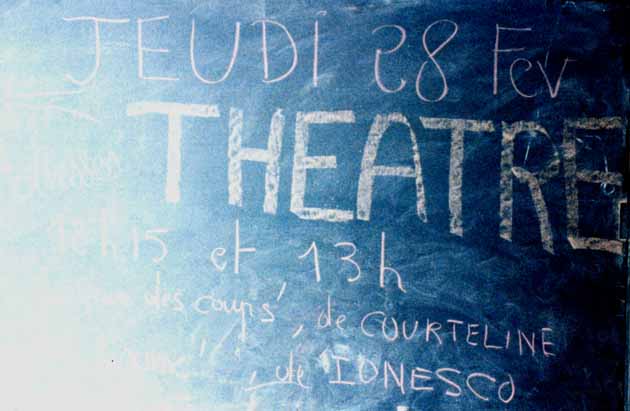 JEUDI 28 Fev
THEATRE
15 et 13h
des coups", de COURTELINE
", de IONESCO